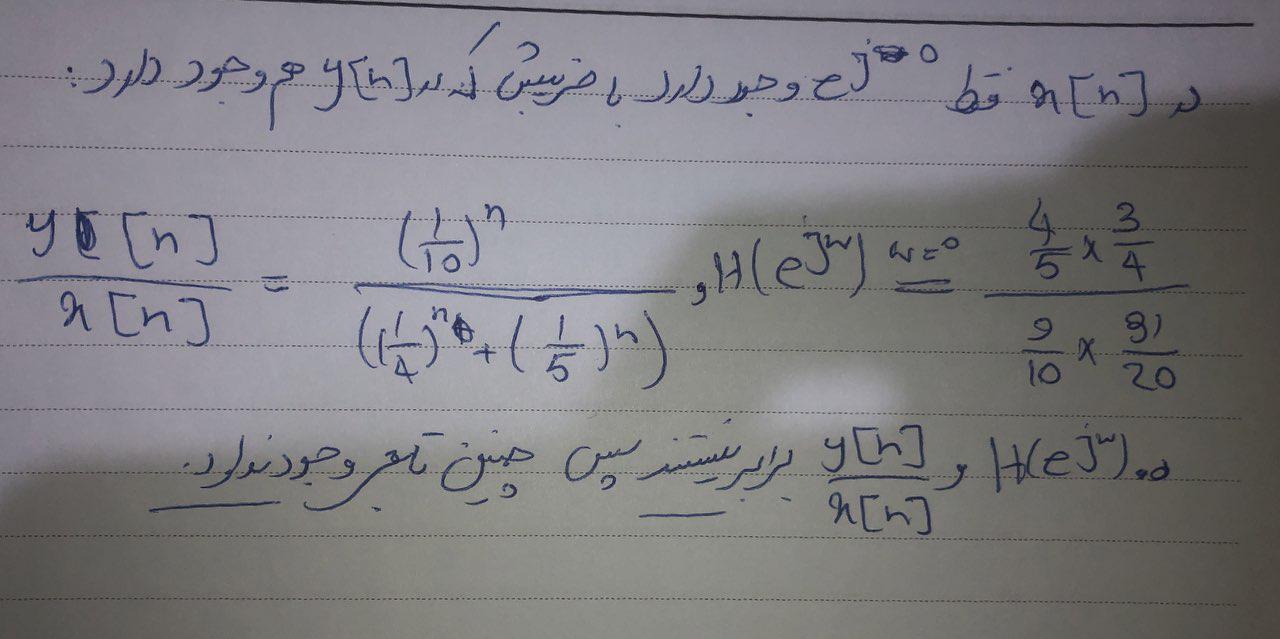 در x[n] فقط e^{j0} وجود دارد با ضریبش که در y[n] هم وجود دارد:
y[n] / x[n] = (1/10)^n / ((1/4)^n + (1/5)^n) , H(e^{jw}) =^{w=0} (4/5 × 3/4) / (9/10 × 91/20)
H(e^{jw}) و y[n]/x[n] برابر نیستند پس چنین تابعی وجود ندارد.